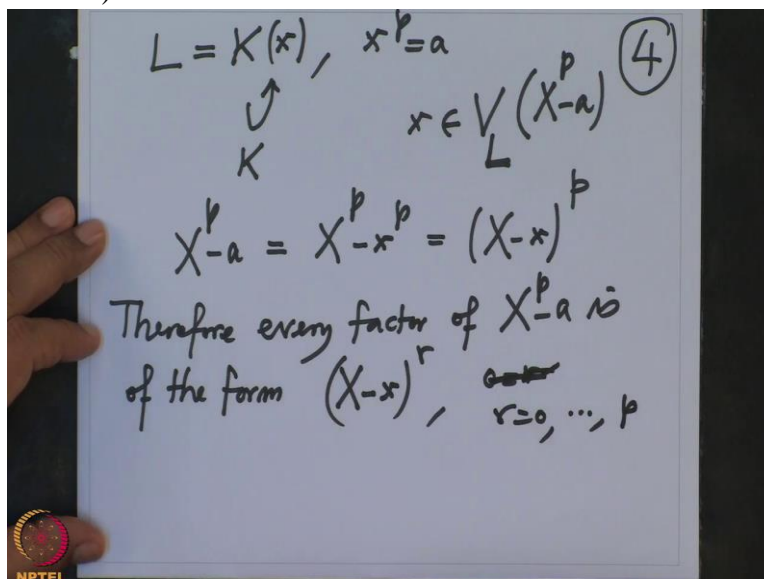 L = K(x), x^p = a
④
K
x ∈ V_L (X^p - a)
X^p - a = X^p - x^p = (X - x)^p
Therefore every factor of X^p - a is
of the form (X - x)^r,
r = 0, ..., p
NPTEL